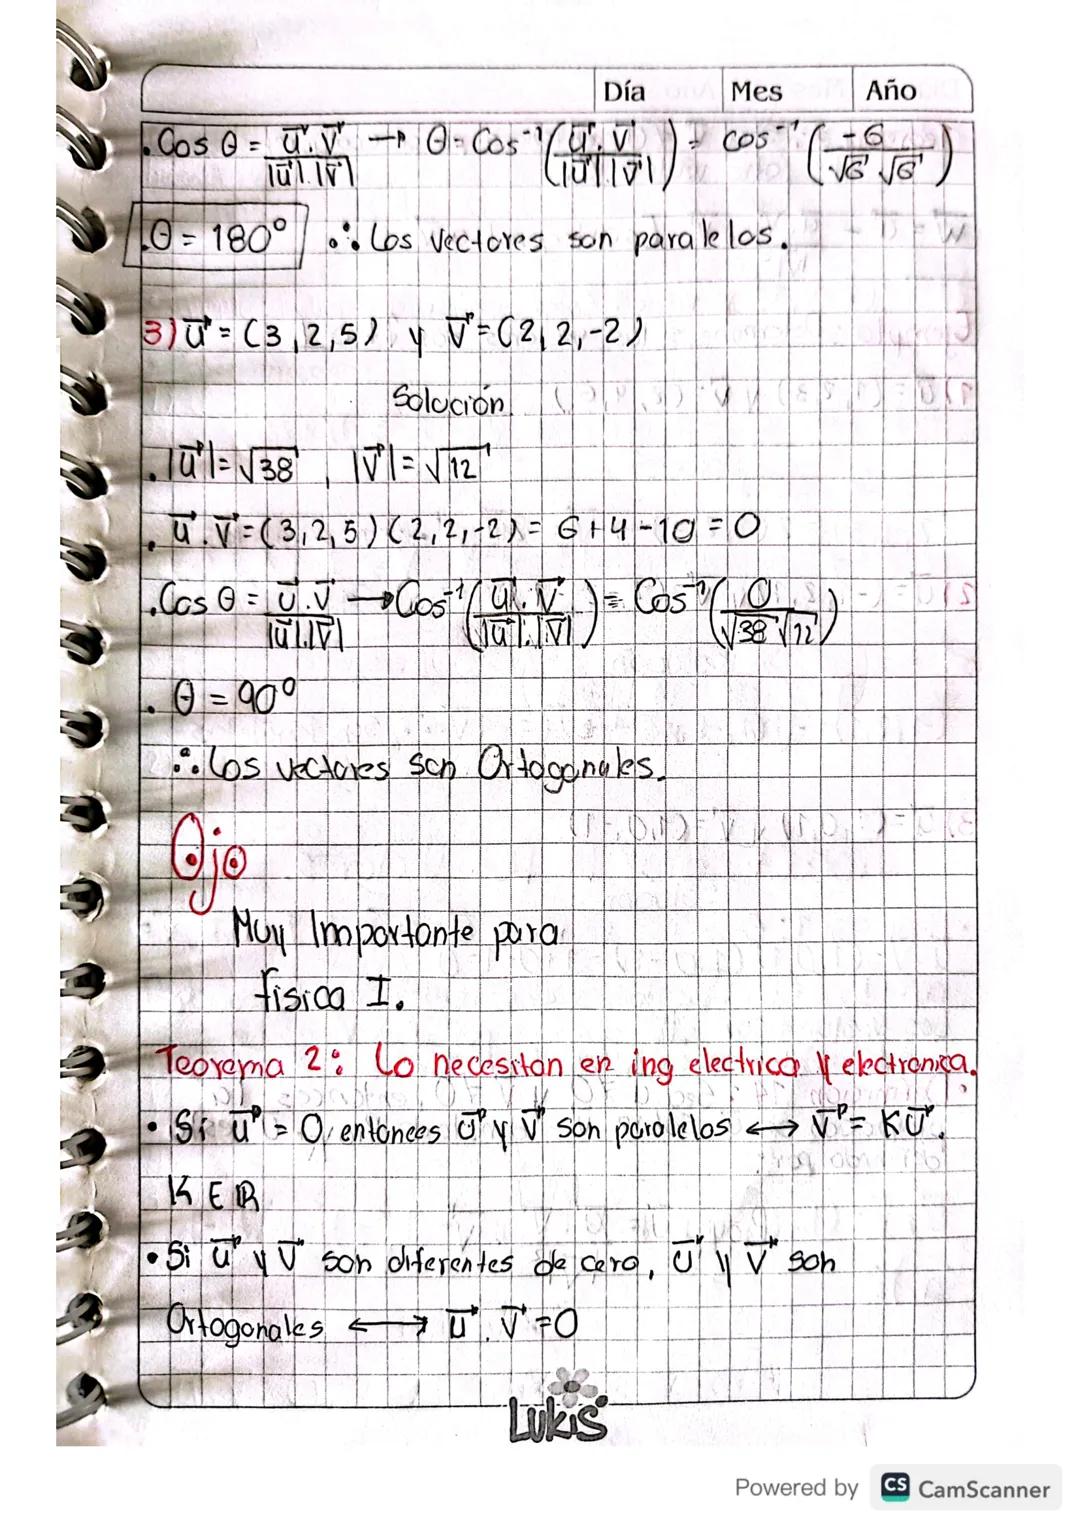 Día Mes Año
. Cos θ = u⃗ . v⃗ / |u⃗| . |v⃗| → θ = Cos⁻¹ ( u⃗ . v⃗ / |u⃗| |v⃗| ) = cos⁻¹ ( -6 / √6 √6 )
. θ = 180° ∴ Los vectores son paralelos.
3) u⃗ = (3, 2, 5) y v⃗ = (2, 2, -2)
Solución
. |u⃗| = √38 , |v⃗| = √12
. u⃗ . v⃗ = (3, 2, 5) (2, 2, -2) = 6 + 4 - 10 = 0
. Cos θ = u⃗ . v⃗ / |u⃗| . |v⃗| → Cos⁻¹ ( u⃗ . v⃗ / |u⃗| . |v⃗| ) = Cos⁻¹ ( 0 / √38 √12 )
. θ = 90°
∴ Los vectores son Ortogonales.
Ojo
Muy Importante para
fisica I.
Teorema 2: Lo necesitan en ing electrica y electronica.
• Si u⃗ = 0, entonces u⃗ y v⃗ son paralelos ↔ v⃗ = K u⃗.
K ∈ ℝ
• Si u⃗ y v⃗ son diferentes de cero, u⃗ y v⃗ son
Ortogonales ↔ u⃗ . v⃗ = 0
LUKIS
Powered by CS CamScanner